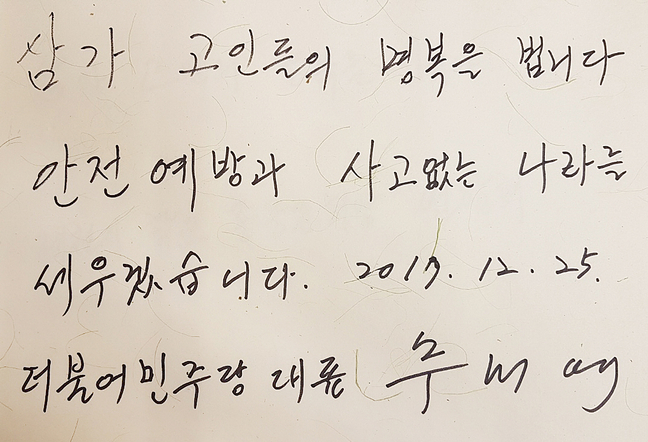 삼가 고인들의 명복을 빕니다
안전 예방과 사고없는 나라를
세우겠습니다. 2017. 12. 25.
더불어민주당 대표 추미애